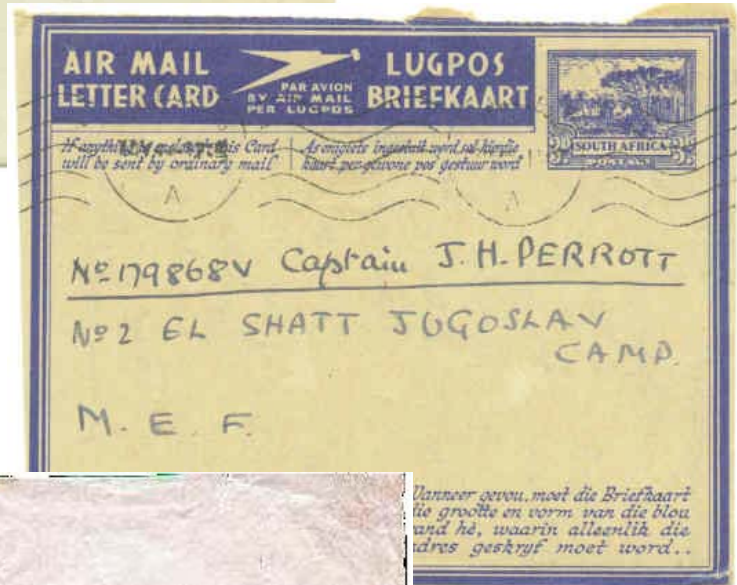 AIR MAIL
LETTER CARD
PAR AVION
BY AIR MAIL
PER LUGPOS
LUGPOS
BRIEFKAART
SOUTH AFRICA
POSTAGE
If anything is enclosed this Card
will be sent by ordinary mail
As enigiets ingesluit word sal hierdie
kaart per gewone pos gestuur word
A
A
Nº 179868V Captain J.H. PERROTT
Nº 2 EL SHATT JUGOSLAV
CAMP.
M. E. F.
Wanneer gevou, moet die Briefkaart
die grootte en vorm van die blou
rand hê, waarin alleenlik die
adres geskryf moet word..